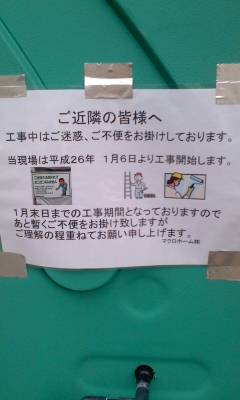 ご近隣の皆様へ
工事中はご迷惑、ご不便をお掛けしております。
当現場は平成26年 1月6日より工事開始します。
1月末日までの工事期間となっておりますので
あと暫くご不便をお掛け致しますが
ご理解の程重ねてお願い申し上げます。
マクロホーム㈱